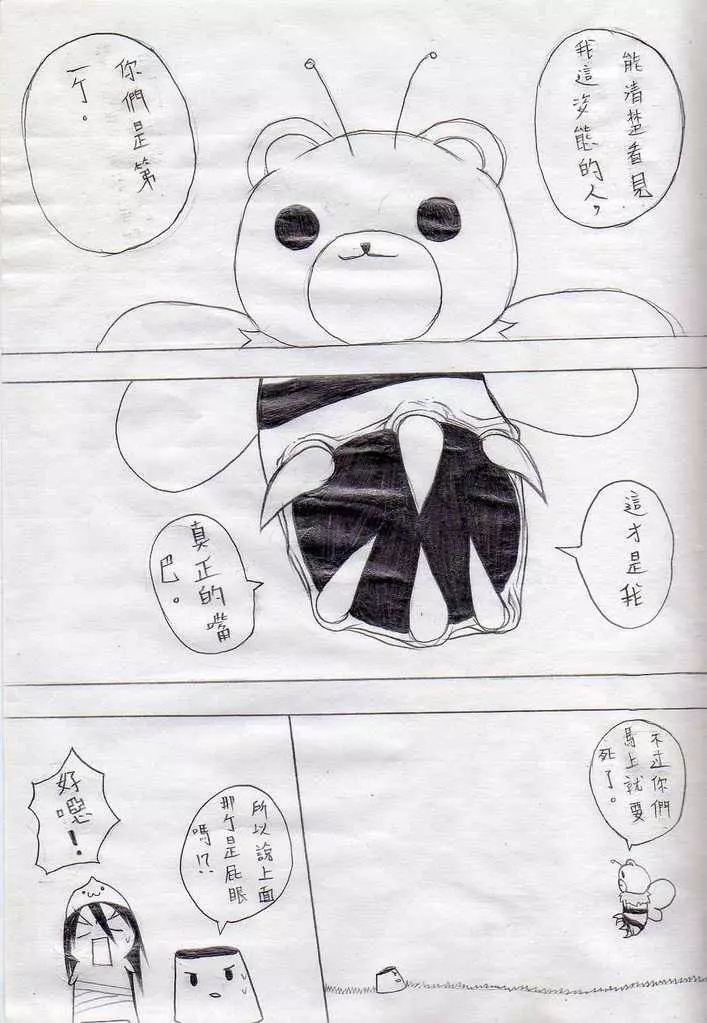 能清楚看見
我這姿態的人，
你們是第
一个。
這才是我
真正的嘴
巴。
不过你們
馬上就要
死了。
所以說上面
那个是屁眼
嗎！？
好噁！